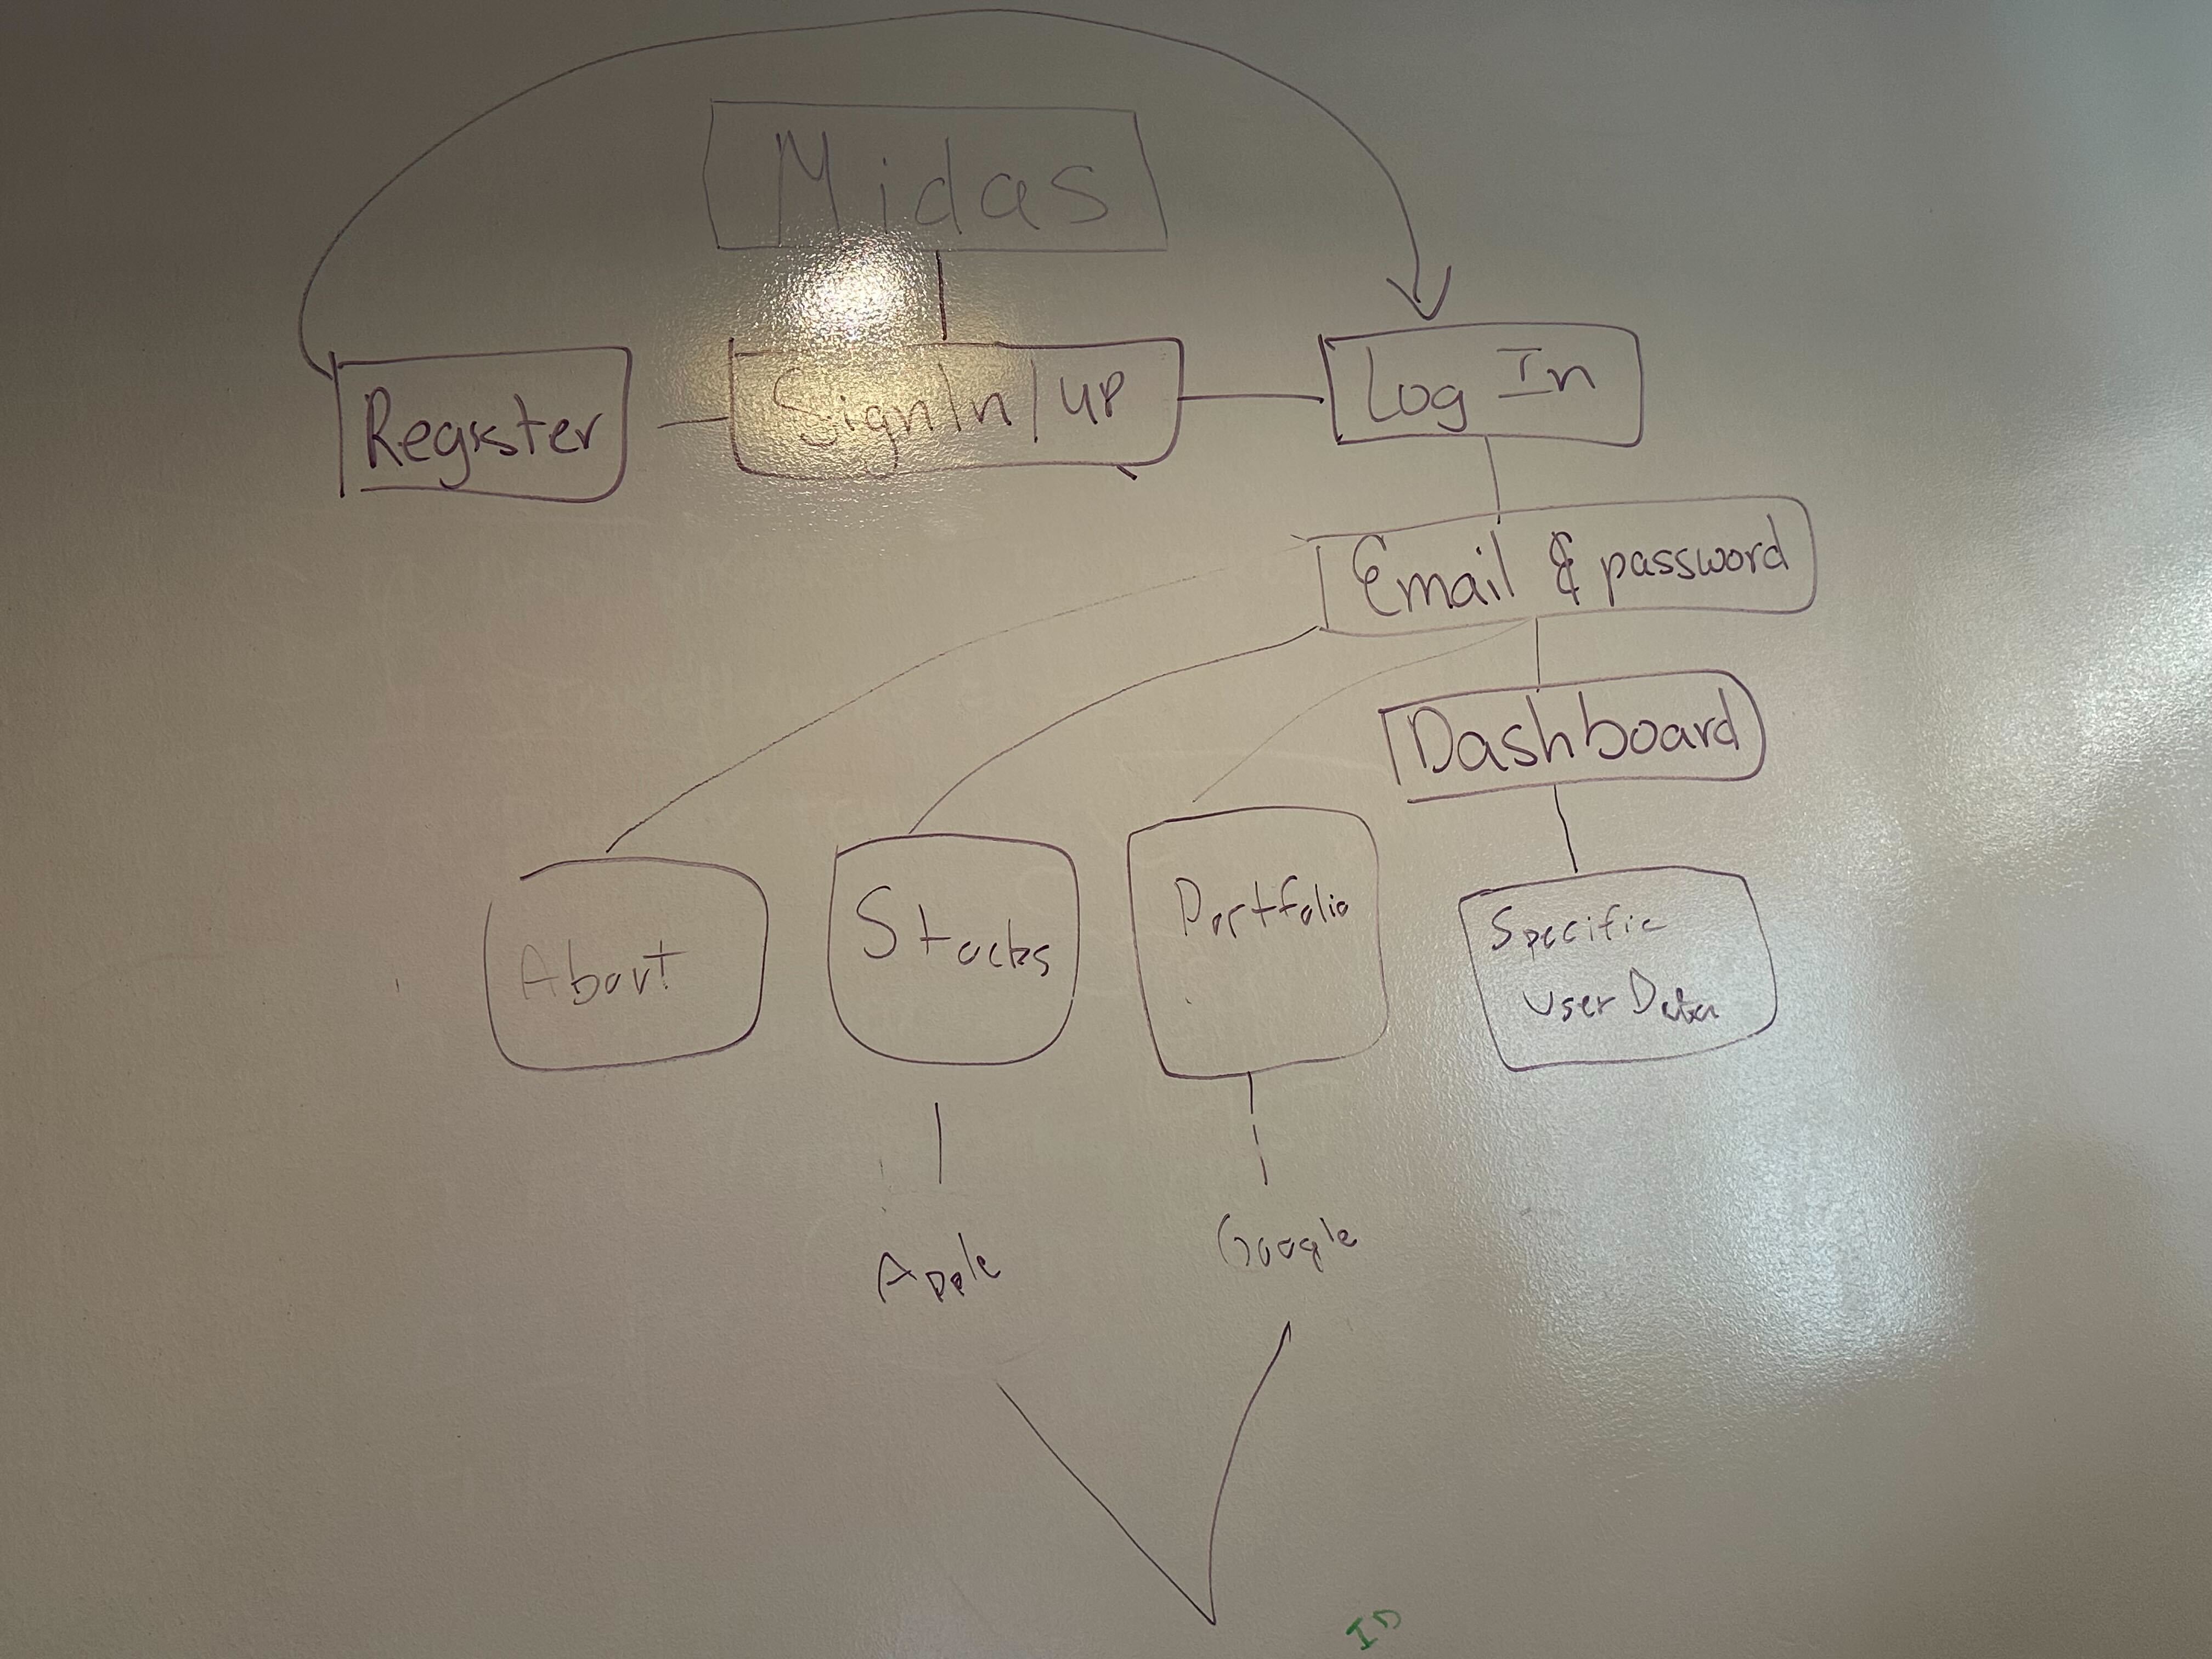 Midas
Register
SignIn/UP
Log In
Email & password
Dashboard
About
Stocks
Portfolio
Specific
User Data
Apple
Google
ID